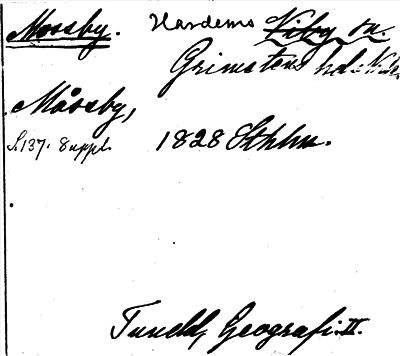 Mossby. Hardemo Viby sn.
Grimstens hd. Närke
Måssby,
S. 137. Suppl. 1828 Sthlm.
Tuneld, Geografi. II.